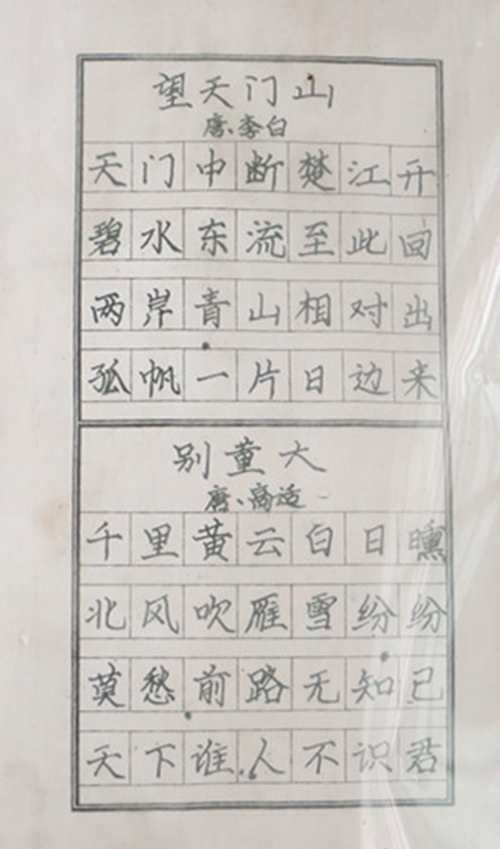 望天门山
唐、李白
天门中断楚江开
碧水东流至此回
两岸青山相对出
孤帆一片日边来
别董大
唐、高适
千里黄云白日曛
北风吹雁雪纷纷
莫愁前路无知己
天下谁人不识君